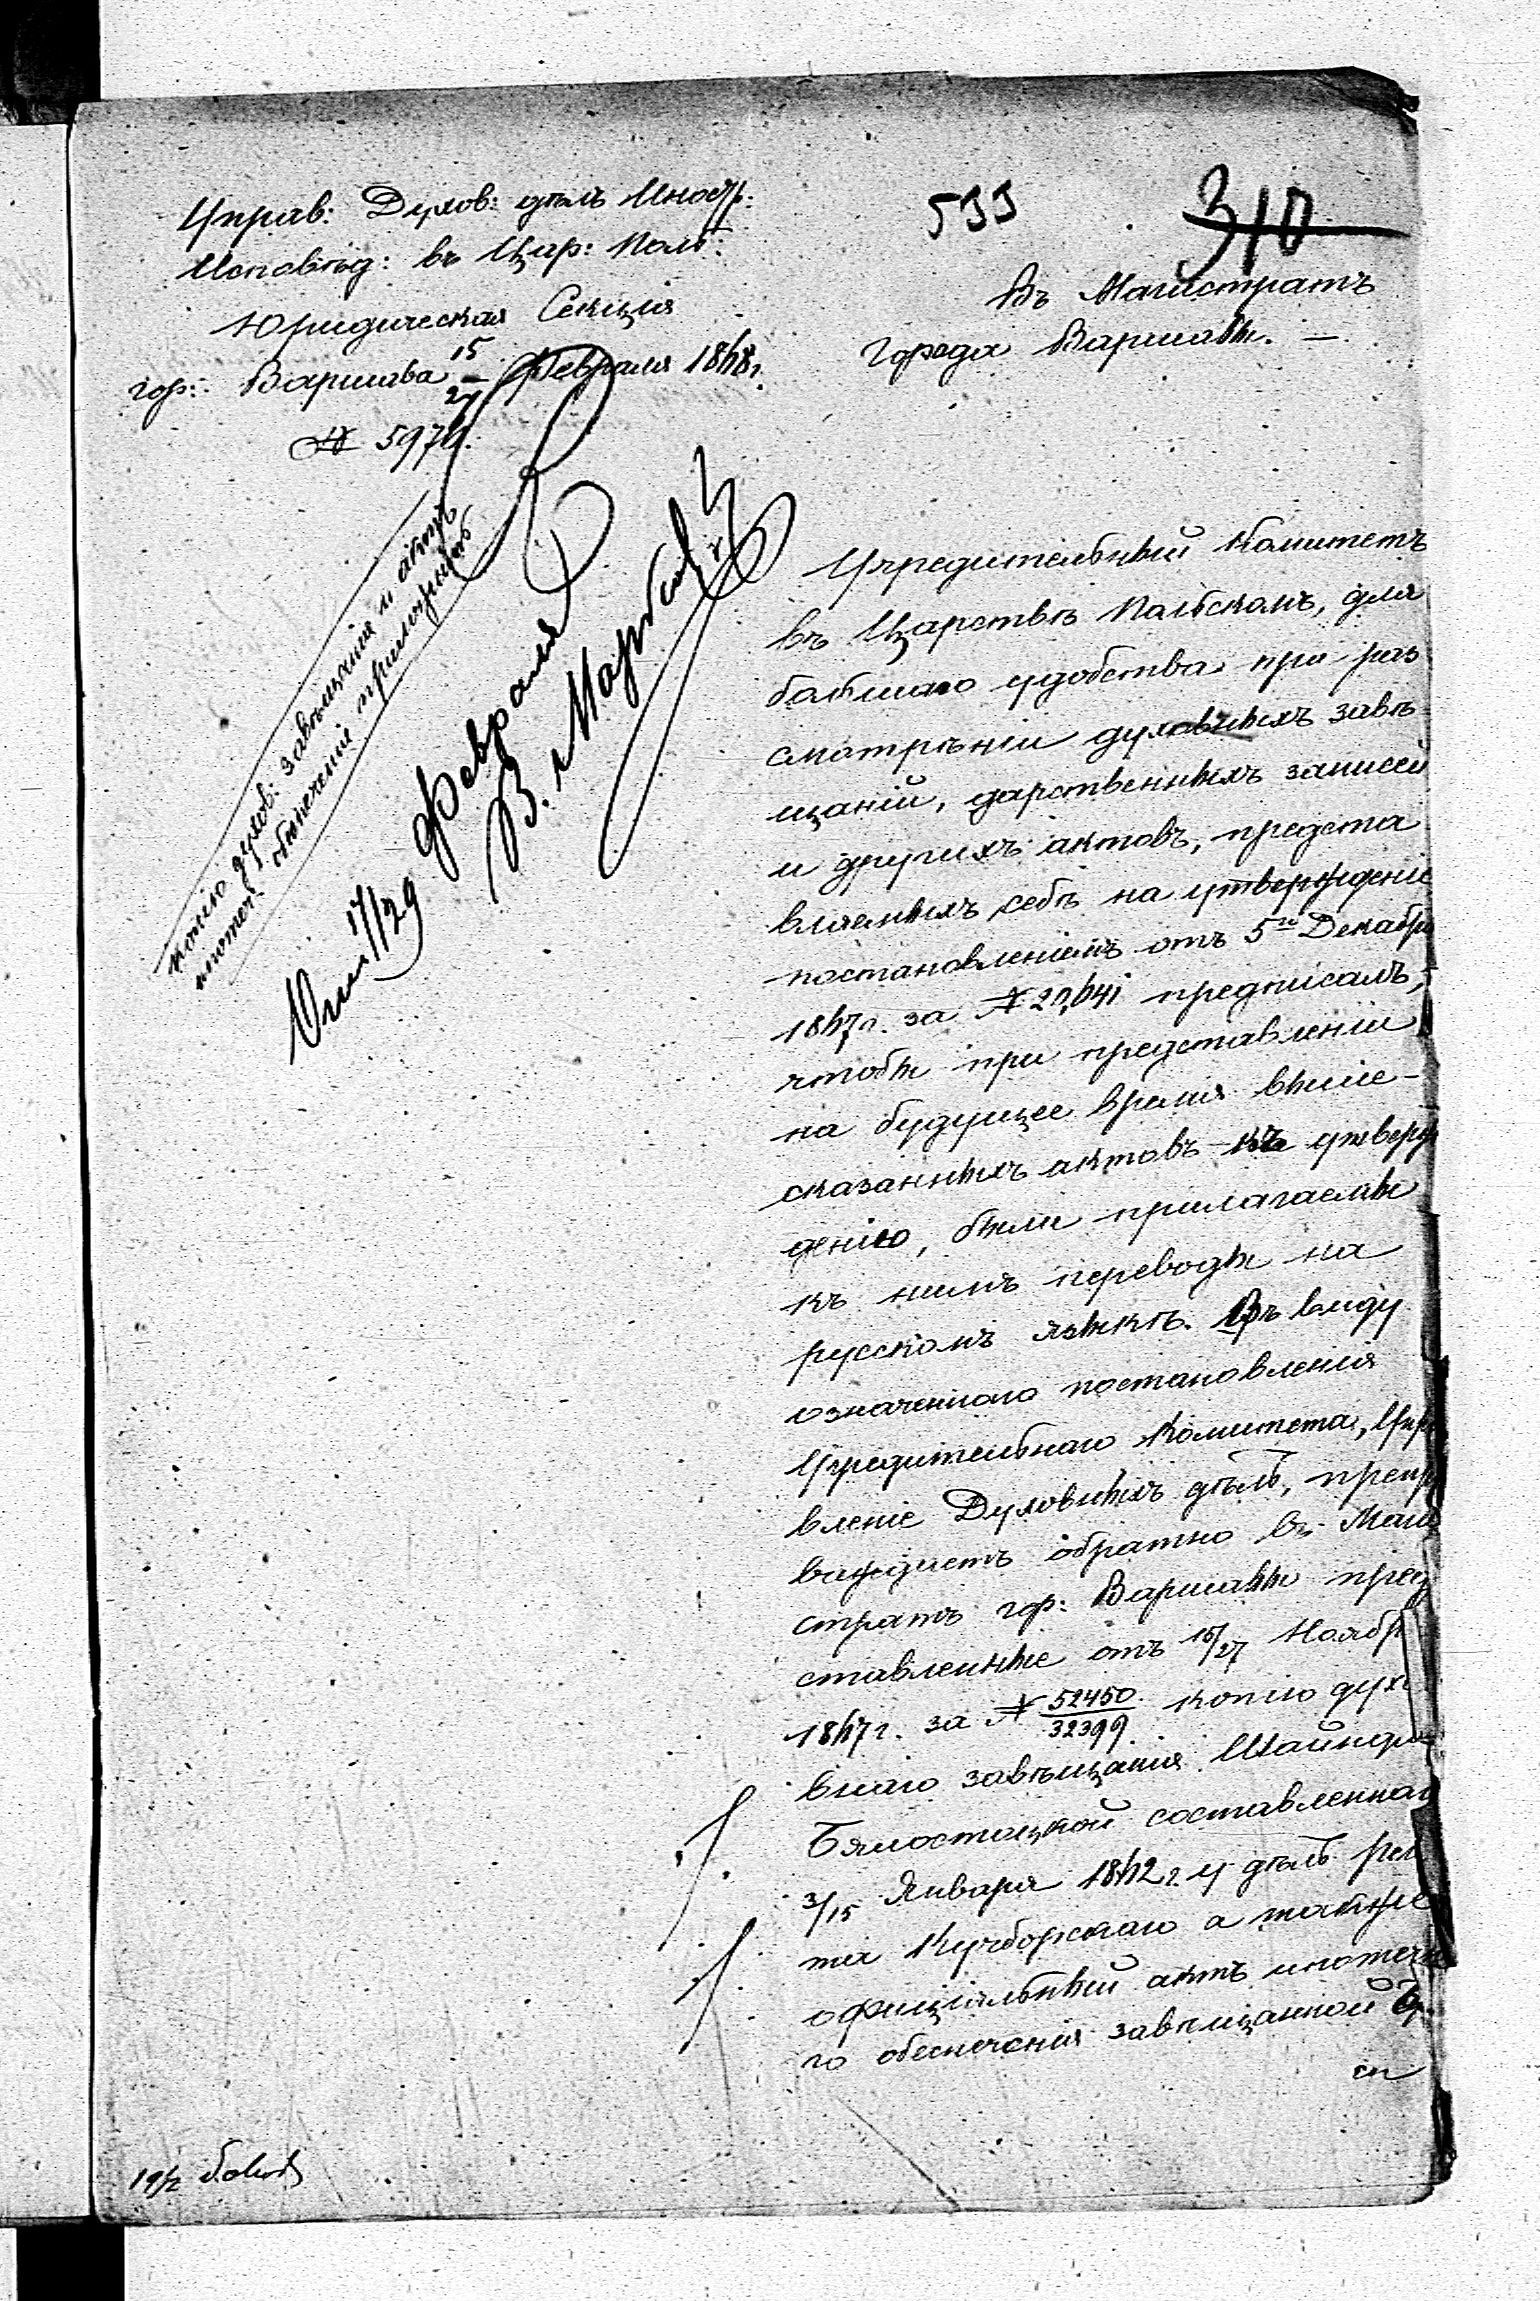 533
310
Управ: Духов: дѣлъ Иностр:
Исповѣд: въ Цар: Поль:
Юридическая Секція
гор: Варшава 15/27 Февраля 1868 г.
№ 5970.
Въ Магистратъ
города Варшавы. —
копію духов: завѣщанія и актъ
ипотеч: обезпеченія приложить
17/29 Февраля
Учредительный Комитетъ
въ Царствѣ Польскомъ, для
большаго удобства при раз
смотрѣніи духовныхъ завѣ
щаній, дарственныхъ записей
и другихъ актовъ, предста
вляемыхъ себѣ на утвержденіе
постановленіемъ отъ 5го Декабря
1867 г. за № 20,641 предписалъ,
чтобы при представленіи
на будущее время выше-
сказанныхъ актовъ къ утверж
денію, были прилагаемы
къ нимъ переводы на
русскомъ языкѣ. Въ виду
означеннаго постановленія
Учредительнаго Комитета, Упра
вленіе Духовныхъ дѣлъ, препро
вождаетъ обратно въ Маги
стратъ гор: Варшавы пред
ставленные отъ 15/27 Ноября
1867 г. за № 52450/32399 копію духо
внаго завѣщанія Шайндли
Бялостоцкой составленнаго
3/15 Января 1862 г. у дѣлъ реген
та Кучборскаго а также
официальный актъ ипотечна
го обеспеченія завѣщанной